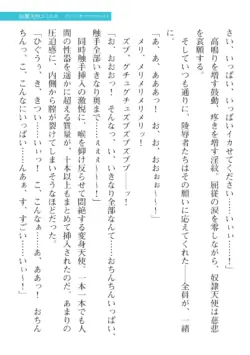 さい、いっぱい、いっぱいイカせてください……いぃっ！」
高鳴りを増す鼓動、疼きを増す淫紋、屈従の涙を零しながら、奴隷天使は慈悲
を哀願する。
そしていつも通りに、陵辱者たちはその願いに応えてくれた――全員が、一緒
に。
「あ、あ、あああぁ！　お、お、おおぉぉ～～っ！」
メリ、メリメリメリメリッ！
ズブ、グチュグチュズブズブズブッ！
「お、おおおっ！　いきなり全部なんて……おちんちんいっぱい、
触手全部いきなり奥まで……えぇぇ～～っ！」
同時触手挿入の激悦に、喉を仰け反らせて悶絶する変身天使。一本一本でも人
間の性器を遥かに超える質量が、十本以上もまとめて挿入されたのだ。あまりの
圧迫感に、内側から膣が裂けてしまいそうなほどだった。
「ひぐぅぅ！　き、こんなぁ……あ、ああっ！　おちん
ちんっ、こ、こんなにいっぱい……んあぁ、す、すごい……いぃ～っ！」